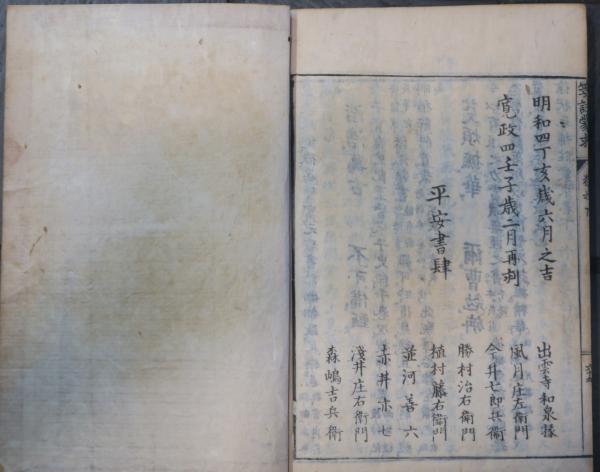 明和四丁亥歳六月之吉
寛政四壬子歳二月再刻
平安書肆
出雲寺和泉掾
風月庄左衛門
今井七郎兵衛
勝村治右衛門
植村藤右衛門
並河善六
赤井赤七
淺井庄右衛門
森嶋吉兵衛
箋註蒙求